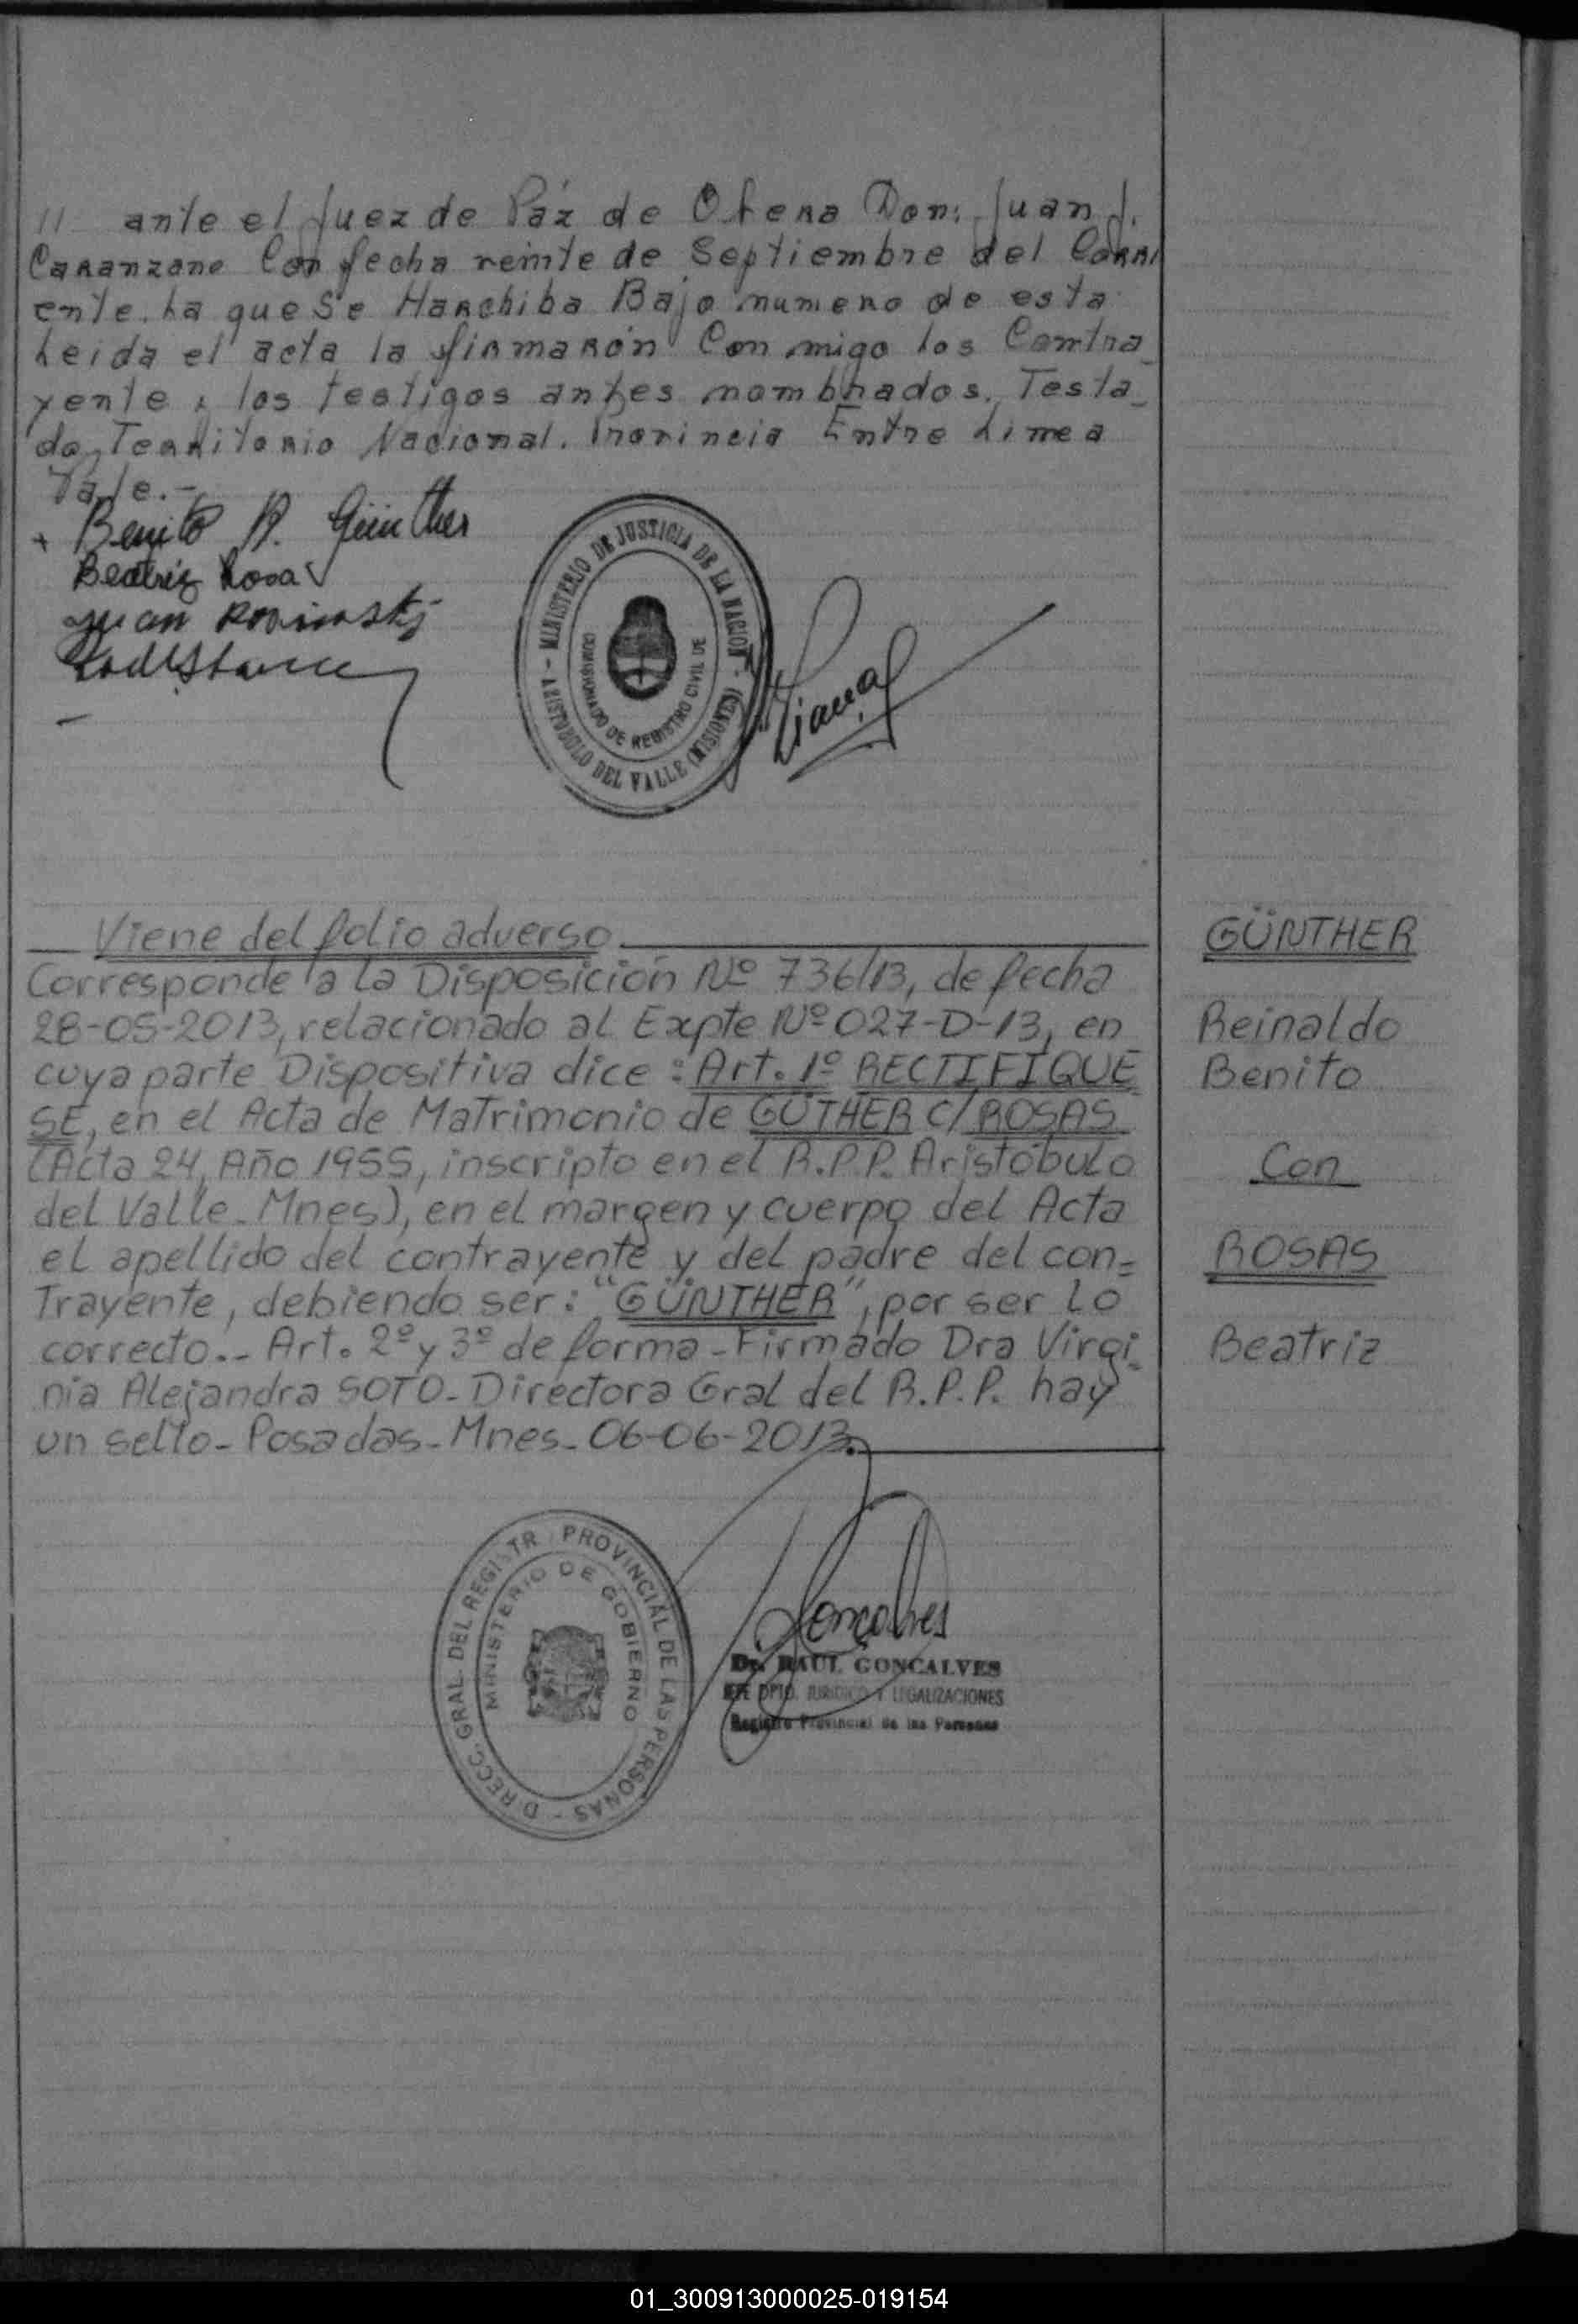 11 ante el Juez de Páz de Obera Don: Juan J.
Caranzano Con fecha veinte de Septiembre del Corri
ente. La que Se Harchiba Bajo numero de esta
Leida el acta la firmarón Con migo los Contra_
yente y los testigos antes nombrados. Testa_
do, Territorio Nacional. Provincia Entre Linea
Vale.-
+ Benito R. Günther
Beatriz Rosas
Juan
- MINISTERIO DE JUSTICIA DE LA NACION -
ARISTOBULO DEL VALLE (MISIONES)
COMISIONADO DE REGISTRO CIVIL DE
Viene del folio adverso.
Corresponde a la Disposición Nº 736/13, de fecha
28-05-2013, relacionado al Expte Nº 027-D-13, en
cuya parte Dispositiva dice: Art. 1º RECTIFIQUE
SE, en el Acta de Matrimonio de GÜTHER C/ ROSAS
(Acta 24, Año 1955, inscripto en el R.P.P. Aristóbulo
del Valle - Mnes), en el margen y cuerpo del Acta
el apellido del contrayente y del padre del con=
Trayente, debiendo ser: "GÜNTHER", por ser lo
correcto.- Art. 2º y 3º de forma - Firmado Dra Virgi=
nia Alejandra SOTO - Directora Gral del R.P.P. hay
un sello - Posadas - Mnes - 06-06-2013.
GÜNTHER
Reinaldo
Benito
Con
ROSAS
Beatriz
DIRECC. GRAL. DEL REGISTR PROVINCIAL DE LAS PERSONAS -
MINISTERIO DE GOBIERNO
Goncalves
Dr. RAUL GONCALVES
JEFE DPTO. JURIDICO Y LEGALIZACIONES
Registro Provincial de las Personas
01_300913000025-019154